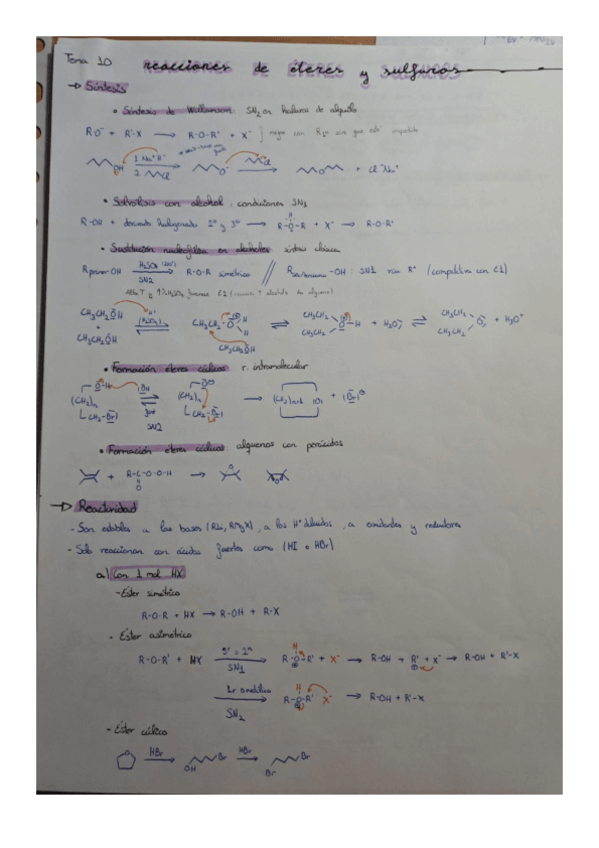 Tema 10 reacciones de éteres y sulfuros
→ Síntesis
• Síntesis de Williamson: SN2 en haluros de alquilo
R-O⁻ + R'-X → R-O-R' + X⁻
OH 1. Na⁺H⁻ 2. Cl → O⁻ Cl → O + Cl⁻Na⁺
• Solvólisis con alcohol: condiciones SN1
R-OH + derivado halogenado 2º y 3º → R-O-R + X⁻ → R-O-R'
• Sustitución nucleofílica en alcoholes síntesis clásica
R primer-OH H₂SO₄ SN2 R-O-R simétrico // -OH: SN1 R⁺ (competitiva con E1)
CH₃CH₂OH + CH₃CH₂OH H⁺ (H₂SO₄) ⇌ CH₃CH₂-O H H CH₃CH₂OH ⇌ CH₃CH₂ CH₃CH₂ O-H + H₂O ⇌ CH₃CH₂ CH₃CH₂ O + H₃O⁺
• Formación éteres cíclicos r. intramolecular
O-H (CH₂)n CH₂-Br ⇌ SN2 O⊖ (CH₂)n CH₂-Br → (CH₂)n+1 O + Br⊖
• Formación éteres cíclicos: alquenos con perácidos
+ R-C-O-O-H O → O O
→ Reactividad
- Son estables a las bases (RLi, RMgX), a los H⁺ diluidos, a oxidantes y reductores
- Solo reaccionan con ácidos fuertes como (HI o HBr)
a) Con 1 mol HX
- Éster simétrico
R-O-R + HX → R-OH + R-X
- Éster asimétrico
R-O-R' + HX SN1 R-O-R' + X⁻ → R-OH + R' + X⁻ → R-OH + R'-X
SN2 R-O-R' X⁻ → R-OH + R'-X
- Éster cíclico
O HBr → OH Br HBr → Br Br